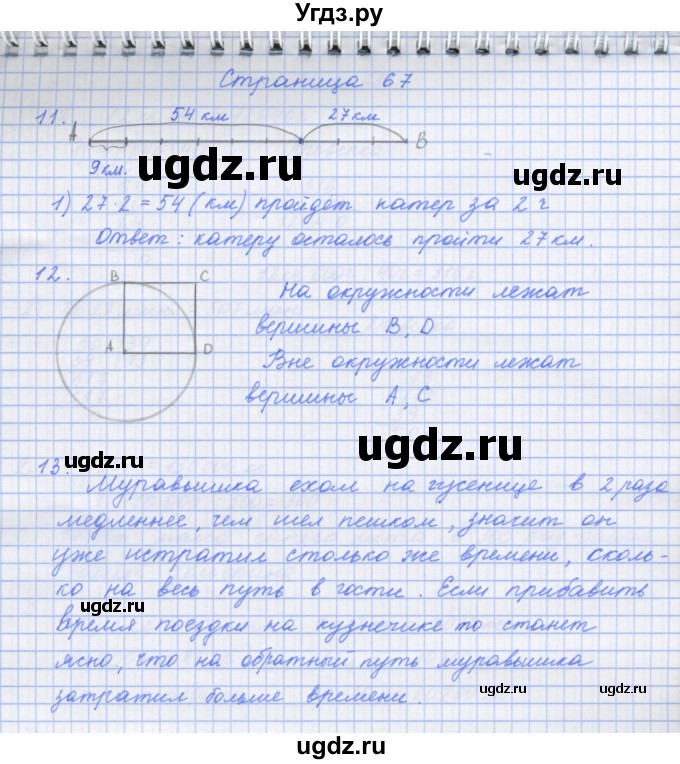 Угдз.ру
Страница 67
11. А 54 км 27 км В
9 км.
ugdz.ru
1) 27 · 2 = 54 (км) пройдёт катер за 2 ч
Ответ: катеру осталось пройти 27 км.
12. В С
А D
На окружности лежат
вершины В, D
Вне окружности лежат
вершины А, С
ugdz.ru
ugdz.ru
13.
Муравьишка ехал на гусенице в 2 раза
медленнее, чем шёл пешком, значит он
уже истратил столько же времени, сколь-
ко на весь путь в гости. Если прибавить
ugdz.ru
время поездки на кузнечике то станет
ясно, что на обратный путь муравьишка
затратил больше времени.
ugdz.ru
ugdz.ru
ugdz.ru